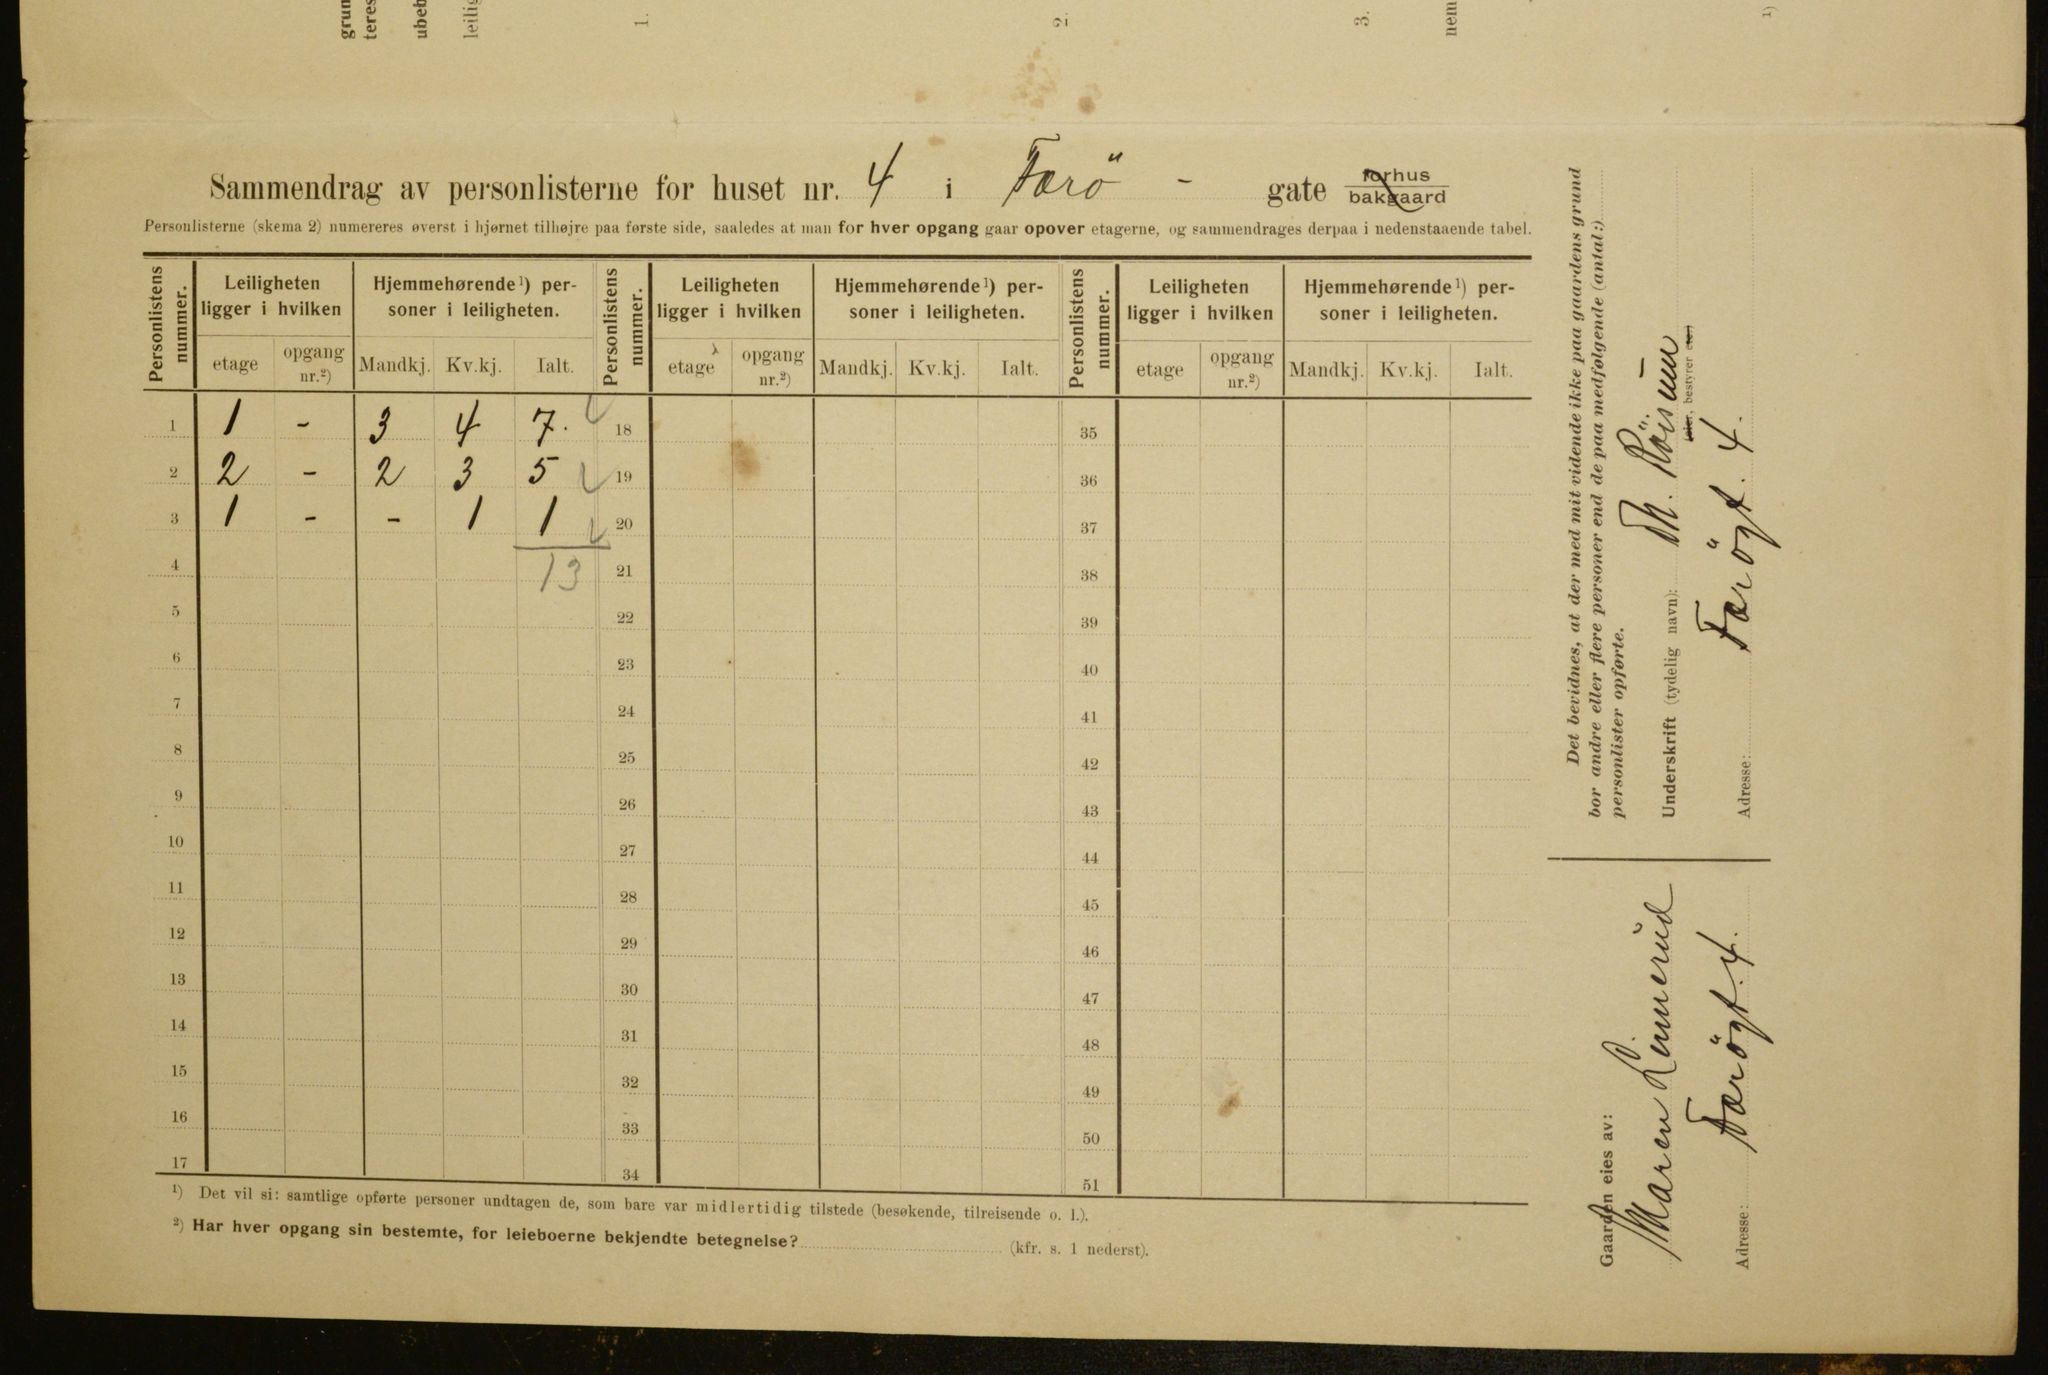 grun
teres
ubeb
leilig
1.
2.
3.
nem
1)
Sammendrag av personlisterne for huset nr. 4 i Færö - gate forhus bakgaard
Personlisterne (skema 2) numereres øverst i hjørnet tilhøjre paa første side, saaledes at man for hver opgang gaar opover etagerne, og sammendrages derpaa i nedenstaaende tabel.
Personlistens nummer. Leiligheten ligger i hvilken Hjemmehørende 1) personer i leiligheten. Personlistens nummer. Leiligheten ligger i hvilken Hjemmehørende 1) personer i leiligheten. Personlistens nummer. Leiligheten ligger i hvilken Hjemmehørende 1) personer i leiligheten.
etage opgang nr.2) Mandkj. Kv.kj. Ialt. etage opgang nr.2) Mandkj. Kv.kj. Ialt. etage opgang nr.2) Mandkj. Kv.kj. Ialt.
1 1 - 3 4 7. 18 35
2 2 - 2 3 5 19 36
3 1 - - 1 1 20 37
4 13 21 38
5 22 39
6 23 40
7 24 41
8 25 42
9 26 43
10 27 44
11 28 45
12 29 46
13 30 47
14 31 48
15 32 49
16 33 50
17 34 51
1) Det vil si: samtlige opførte personer undtagen de, som bare var midlertidig tilstede (besøkende, tilreisende o. l.).
2) Har hver opgang sin bestemte, for leieboerne bekjendte betegnelse? (kfr. s. 1 nederst).
Det bevidnes, at der med mit vidende ikke paa gaardens grund
bor andre eller flere personer end de paa medfølgende (antal:)
personlister opførte.
Underskrift (tydelig navn): Th.
(eier, bestyrer etc.)
Adresse: Færögt. 4.
Gaarden eies av:
Maren Linnerud
Adresse: Færögt. 4.